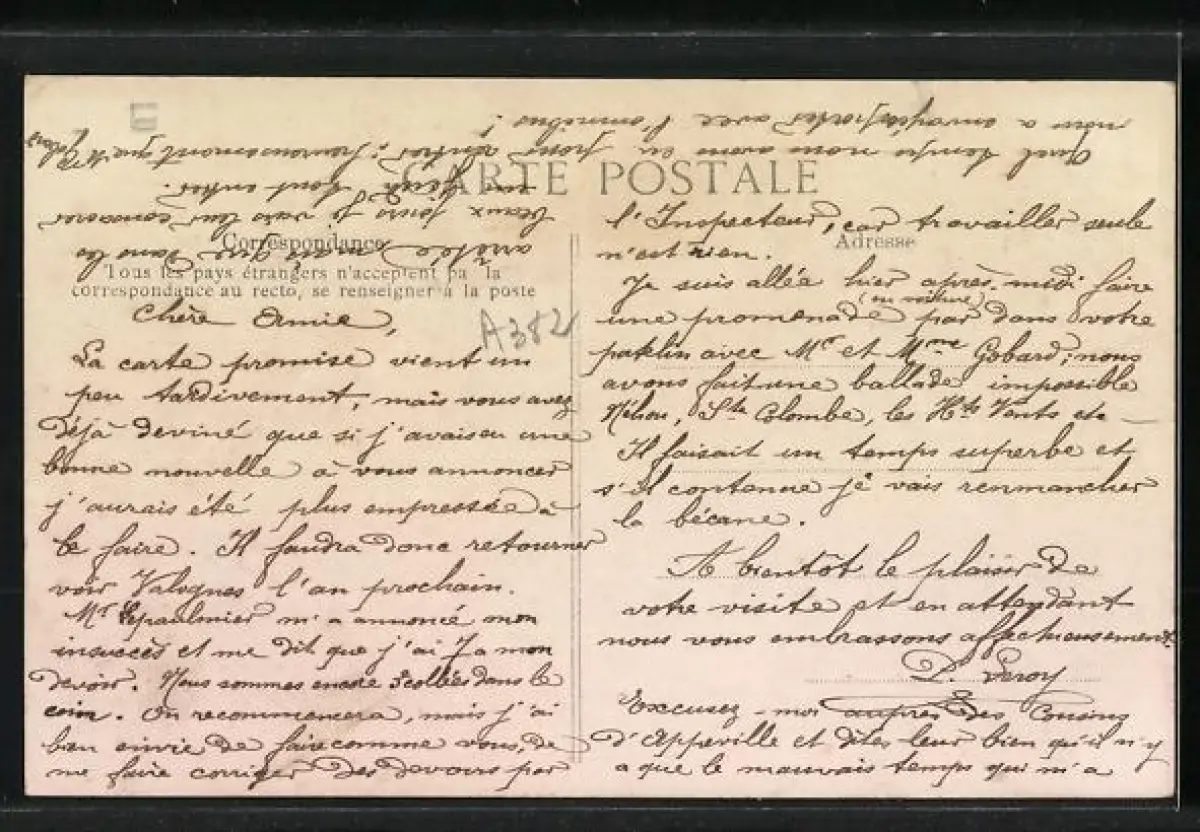 CARTE POSTALE
Correspondance
Tous les pays étrangers n'acceptent pas la
correspondance au recto, se renseigner à la poste
Adresse
A382
Chère Amie,
La carte promise vient un
peu tardivement, mais vous avez
déjà deviné que si j'avais eu une
bonne nouvelle à vous annoncer
j'aurais été plus empressée à
le faire. Il faudra donc retourner
voir Valognes l'an prochain.
Mr Lepaulmier m'a annoncé mon
insuccès et me dit que j'ai
devoir. Nous sommes encore 3 collées dans le
coin. On recommencera, mais j'ai
bien envie de faire comme vous, de
me faire corriger des devoirs par
l'Inspecteur, car travailler seule
n'est rien.
Je suis allée hier après-midi faire
(en voiture)
une promenade par dans votre
patelin avec Mr et Mme Gobard; nous
avons fait une ballade impossible
Néhou, Ste Colombe, les Hts Vents etc
Il faisait un temps superbe et
s'il continue je vais renmancher
la bécane.
A bientôt le plaisir de
votre visite et en attendant
nous vous embrassons affectueusement
D. Leroy
Excusez-moi auprès des Cousins
d'Appeville et dites leur bien qu'il n'y
a que le mauvais temps qui m'a
arrêtée mais que dans les
beaux jours je vais leur consacrer
un jeudi tout entier.
Quel temps nous avons eu pour rentrer; heureusement que Mr
nous a avec l'omnibus!